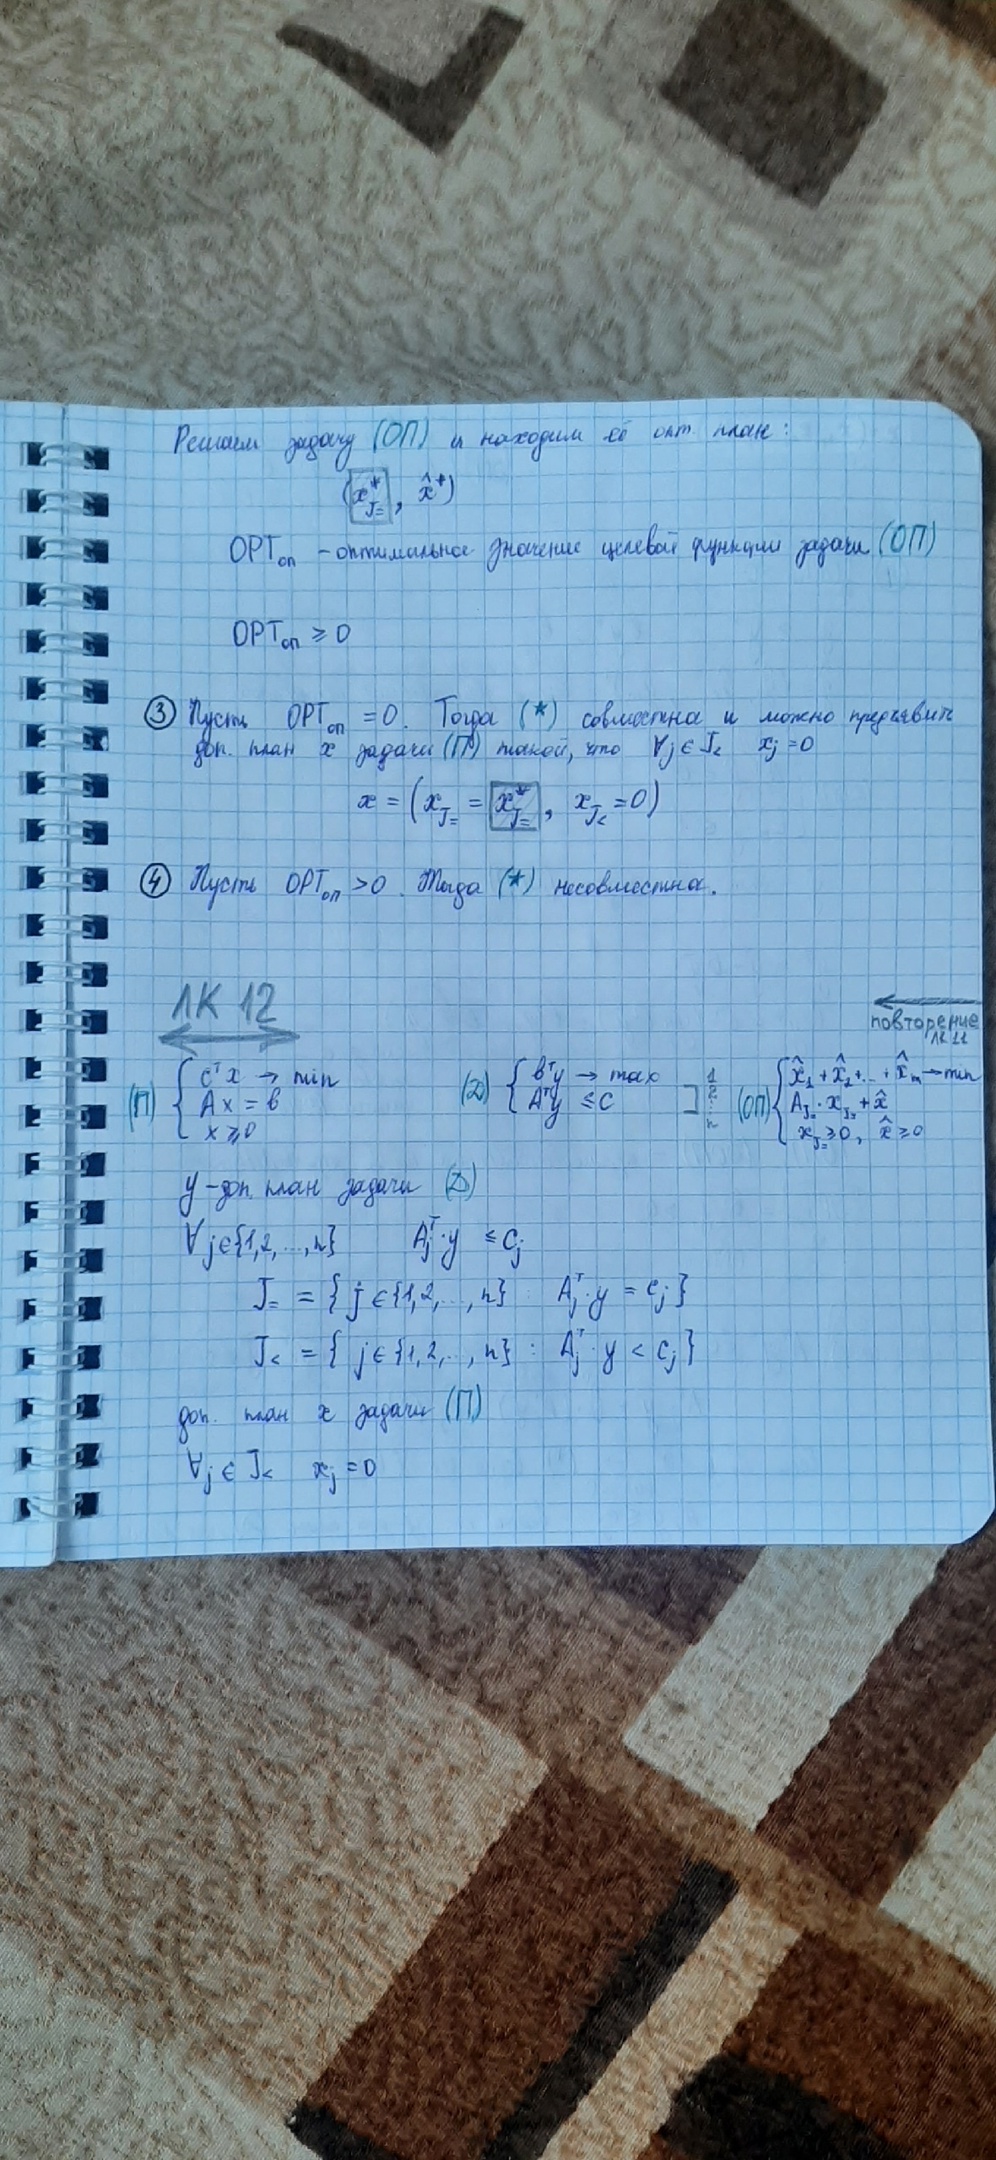 Решаем задачу (ОП) и находим её опт. план:
(x*_J=, x̂*)
OPT_оп – оптимальное значение целевой функции задачи (ОП)
OPT_оп ≥ 0
③ Пусть OPT_оп = 0. Тогда (*) совместна и можно предъявить
доп. план x задачи (П) такой, что ∀j ∈ J< x_j = 0
x = (x_J= = x*_J=, x_J< = 0)
④ Пусть OPT_оп > 0. Тогда (*) несовместна.
ЛК 12
повторение
ЛК 11
(П) { cᵀx → min
Ax = b
x ≥ 0
(Д) { bᵀy → max
Aᵀy ≤ c
] 1 2 ... n
(ОП) { x̂₁ + x̂₂ + ... + x̂_m → min
A_J= · x_J= + x̂
x_J= ≥ 0, x̂ ≥ 0
y – доп. план задачи (Д)
∀j ∈ {1,2,...,n} A_jᵀ · y ≤ c_j
J= = { j ∈ {1,2,...,n} : A_jᵀ · y = c_j }
J< = { j ∈ {1,2,...,n} : A_jᵀ · y < c_j }
доп. план x задачи (П)
∀j ∈ J< x_j = 0